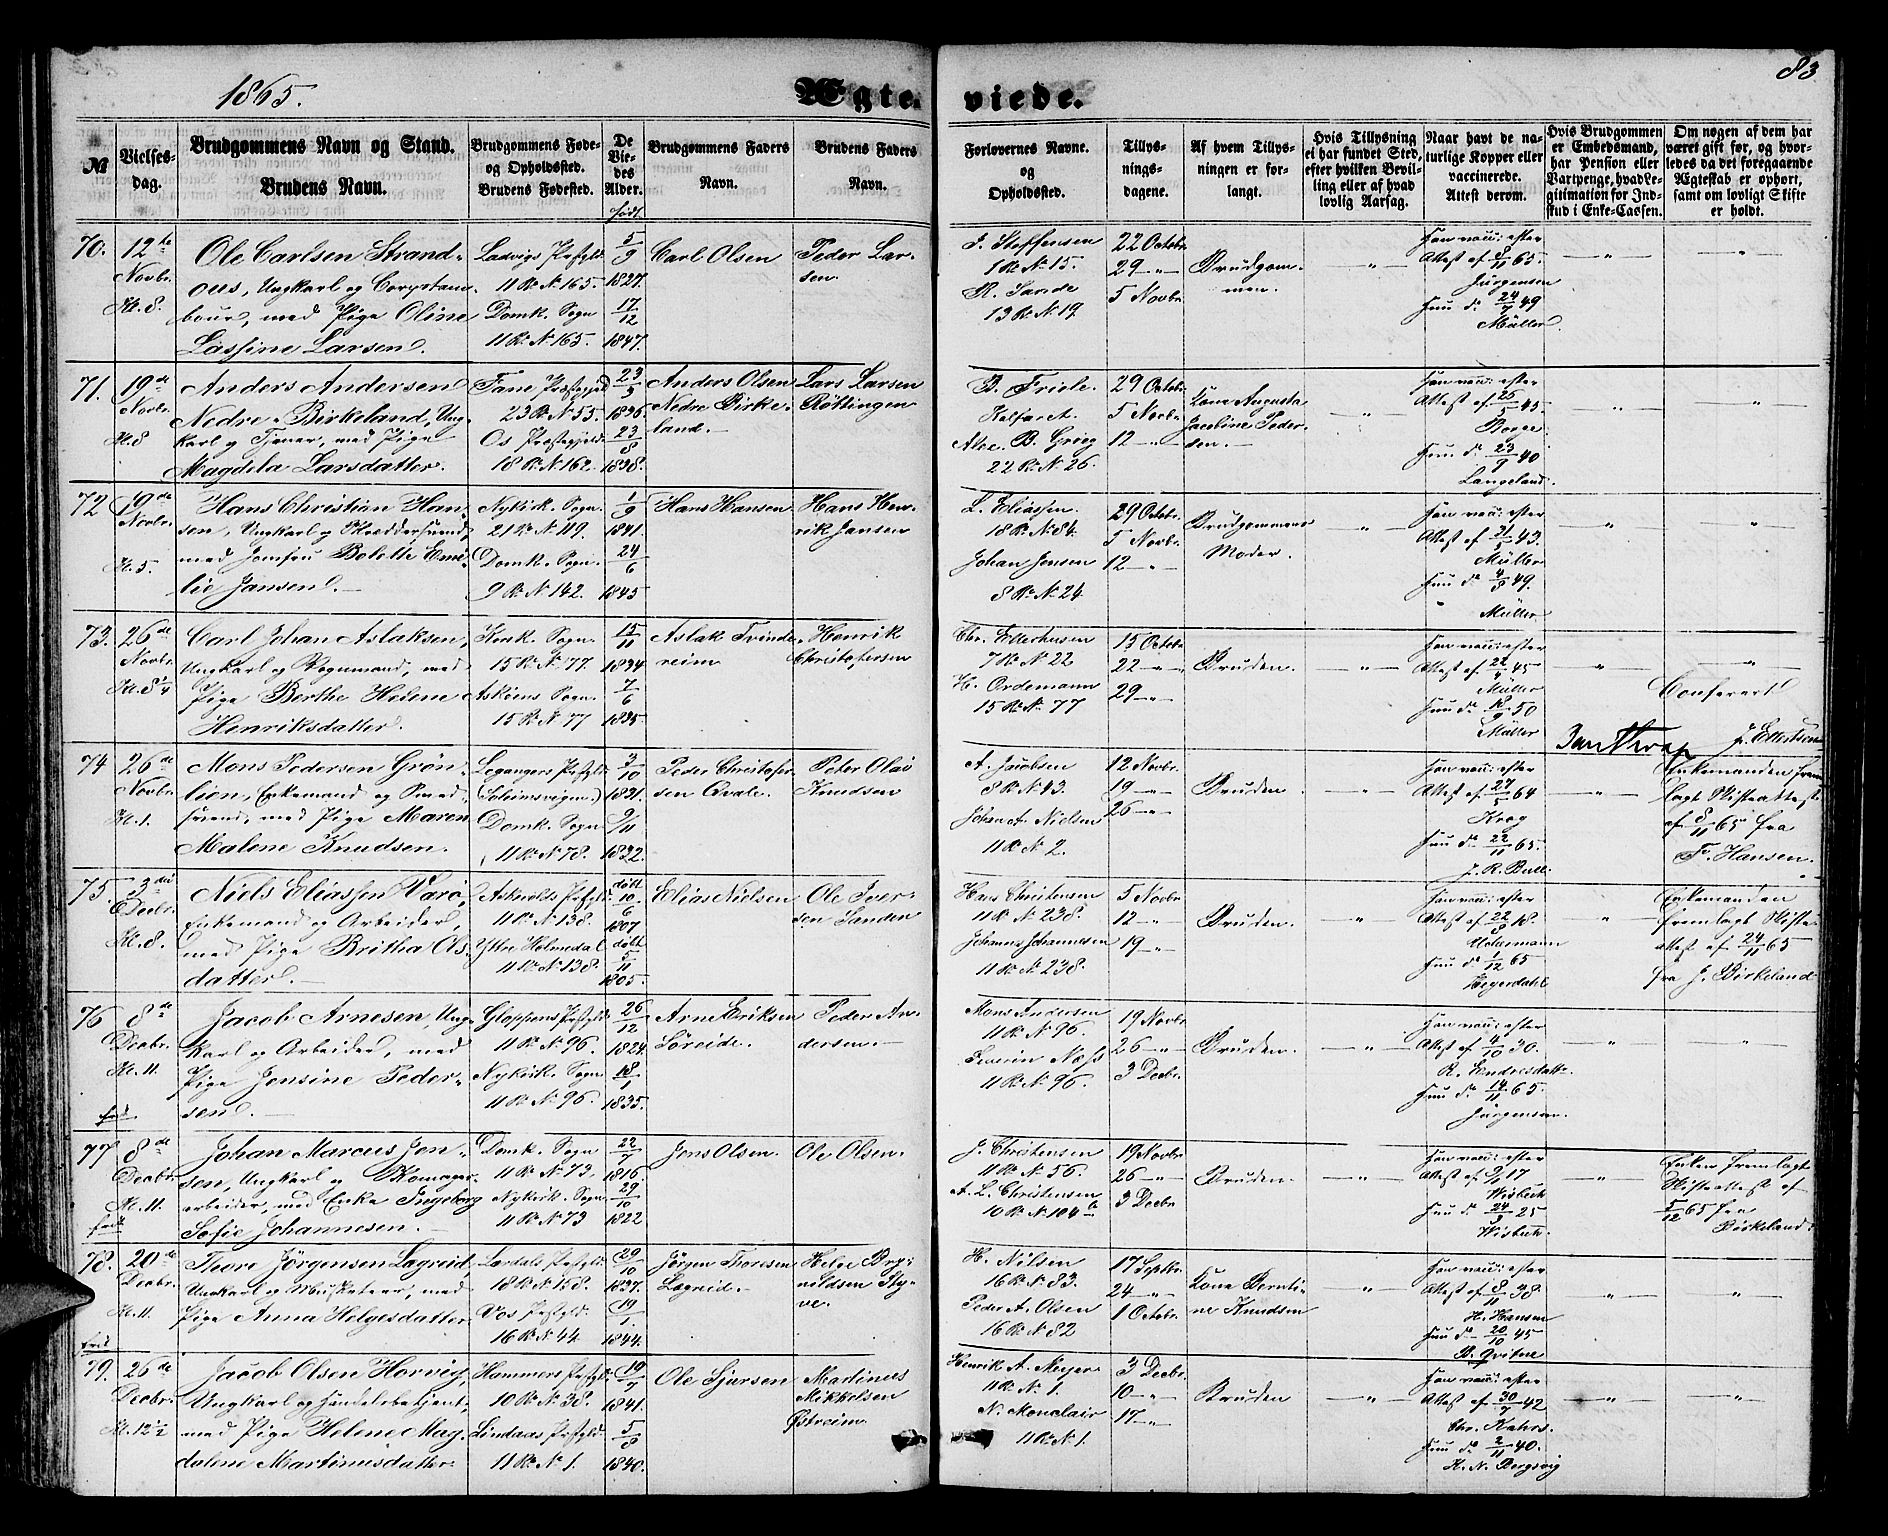 1865.
Ægteviede.
83
№
Vielses-dag.
Brudgommens Navn og Stand.
Brudens Navn.
Brudgommens Føde- og Opholdssted.
Brudens Fødested.
De Viedes Alder.
født
Brudgommens Faders Navn.
Brudens Faders Navn.
Forlovernes Navne.
og
Opholdssted.
Tillys-nings-dagene.
Af hvem Tillys-ningen er for-langt.
Hvis Tillysning ei har fundet Sted, efter hvilken Bevil-ling eller af hvad lovlig Aarsag.
Naar havt de na-turlige Kopper eller vaccinerede.
Attest derom.
Hvis Brudgommen er Embedsmand, har Pension eller Vartpenge, hvad Le-gitimation for Ind-skud i Enke-Cassen.
Om nogen af dem har været gift før, og hvor-ledes da det foregaaende Ægteskab er ophørt, samt om lovligt Skifte er holdt.
70. 12te Novbr. Kl. 8.
Ole Carlsen Strand-
ous, Ungkarl og Corpstam-
bour, med Pige Oline
Lassine Larsen.
Ladvigs Præstgjld
11 R. N. 165.
Domk. Sogn
11 R. N. 165.
5/9 1827.
17/12 1847.
Carl Olsen
Peder Lar-
sen
J. Steffensen
1 R. N. 15.
13 R. N. 19
22 Octobr.
29 -"-
5 Novbr.
Brudgom-
men.
Han vacc: efter
Attest af 8/11 65.
Jürgensen
Hun do 24/7 49
Müller.
71. 19de Novbr. Kl. 8
Anders Andersen
Nedre Birkeland, Ung-
karl og Tjener, med Pige
Magdela Larsdatter.
Fane Præstegjeld
23 R. N. 55.
Os Præstegjeld.
18 R. N. 162.
23/3 1836.
23/8 1838.
Anders Olsen
Nedre Birke-
land.
Lars Larsen
Röttingen
B. Friele.
Kalfaret.
Alex. B. Grieg
22 R. N. 26.
29 Octobr
5 Novbr
12 -"-
Kone Augusta
Jacobine Peder-
sen.
Han vacc: efter
Attest af 25/5 45.
Hun do 23/9 40
Langeland.
72 19de Novbr. Kl. 5.
Hans Christian Han-
sen, Ungkarl og Skræddersvend,
med Jomfru Bolette Emi-
lie Jansen.
Nykirk. Sogn.
21 R. N. 119.
Domk. Sogn.
9 R. N. 142.
1/9 1841.
24/6 1845
Hans Hansen
Hans Hen-
rik Jansen
L. Eliassen.
18 R. N. 84.
Johan Jensen
8 R. N. 24.
29 Octobr.
5 Novbr.
12 -"-
Brudgommens
Moder.
Han vacc: efter
Müller
Hun do 4/8 49.
Müller
73. 26de Novbr. Kl. 8 1/4
Carl Johan Aslaksen,
Ungkarl og Vognmand, med
Pige Berthe Helene
Henriksdatter.
Korsk. Sogn.
15 R. N. 77.
Askøens Sogn.
15 R. N. 77
15/11 1834
7/6 1835
Aslak Tvinde-
reim
Henrik
Christofersen
Chr. Ellerhusen
7 R. N. 22
H. Ordemann
15 R. N. 77
15 Octobr.
22 -"-
29 -"-
Bruden.
Han vacc: efter
Attest af 22/4 45
Müller
Hun do 18/9 50
Müller
Confereret
J. Ellertsen
74 26de Novbr. Kl. 1.
Mons Pedersen Grön-
lien, Enkemand og Smed-
svend, med Pige Maren
Malene Knudsen.
Legangers Præstgjld
(Solheimsvigen.)
Domk. Sogn
11 R. N. 78.
3/10 1821.
9/11 1832.
Peder Christofer-
sen Qvale.
Peter Olai
Knudsen
A. Jacobsen
8 R. N. 43.
Johan A. Nielsen
11 R. N. 2.
12 Novbr.
19 -"-
26 -"-
Bruden.
Han vacc: efter
Attest af 27/5 64
Krog
Hun do 22/11 65.
J. R. Bull.
Enkemanden frem-
lagt Skifteattest
af 8/11 65 fra
F. Hansen.
75. 3die Decbr. Kl. 8.
Niels Eliassen Varö,
Enkemand og Arbeider,
med Pige Britha Ols-
datter.
Askevolds Præstgjld.
11 R. N. 138.
Yttre Holmedal
11 R. N. 138.
døbt 10/6 1807
døbt 5/11 1805.
Elias Nielsen
Ole Iver-
sen Sanden
Hans Christensen
11 R. N. 238.
Johannes Johannesen
11 R. N. 238.
5 Novbr
12 -"-
19 -"-
Bruden.
Han vacc: efter
Attest af 22/8 18.
Uchermann
Hun do 1/12 65
Heyerdahl
Enkemanden
fremlagt Skifte-
attest af 24/11 65
fra J. Birkeland
76 8de Decbr. Kl. 11. frit
Jacob Arnesen, Ung-
karl og Arbeider, med
Pige Jensine Peder-
sen.
Gloppens Præstgjld
11 R. N. 96.
Nykirk. Sogn
11 R. N. 96.
26/12 1824.
18/1 1835.
Arne Eriksen
Söreide.
Peder An-
dersen.
Mons Andersen
11 R. N. 96.
Severin Næss
11 R. N. 96.
19 Novbr
26 -"-
3 Decbr.
Bruden.
Han vacc: efter
Attest af 4/10 30.
R. Endresdatt.
Hun do 14/11 65.
Jürgensen.
77 8de Decbr. Kl. 11. frit
Johan Marcus Jen-
sen, Ungkarl og Skomager-
arbeider, med Enke Ingeborg
Sofie Johannesen.
Domk. Sogn
11 R. N. 73.
Nykirk. Sogn
11 R. N. 73
22/7 1816.
29/10 1822.
Jens Olsen.
Ole Olsen.
J. Christensen
11 R. N. 56.
A. L. Christensen
10 R. N. 104 b
19 Novbr
26 -"-
3 Decbr
Bruden.
Han vacc: efter
Wisbech
Wisbech.
Enken fremlagt
Skifteattest af
5/12 65 fra
Birkeland.
78. 20de Decbr. Kl. 11. frit
Thore Jørgensen Lagreid,
Ungkarl og Musketeer, med
Pige Anna Helgesdatter.
Lærdals Præstgjld.
18 R. N. 158.
Vos Præstgjld.
16 R. N. 44.
29/10 1837.
19/1 1844.
Jørgen Thoresen
Lagreid.
Helge Bry-
nildsen Sty-
ve.
H. Nilsen
16 R. N. 83.
Peder A. Olsen
16 R. N. 82
17 Septbr.
24 -"-
1 Octobr.
Kone Bernti-
ne Knudsen
Han vacc: efter
Attest af 8/11 38.
H. Hansen
Hun do 20/10 45
B. Qvitne
79. 26de Decbr. Kl. 12 1/2
Jacob Olsen Horvig,
Ungkarl og Handelsbetjent,
med Pige Helene Mag-
dalene Martinusdatter.
Hammers Præstgjld.
10 R. N. 38.
Lindaas Præstgjld.
11 R. N. 1.
19/7 1841.
5/8 1840.
Ole Sjursen
Martinus
Mikkelsen
Østreim.
Henrik A. Meyer
11 R. N. 1.
N. Monclair
11 R. N. 1.
3 Decbr.
10 -"-
17 -"-
Bruden
Han vacc: efter
Attest af 30/7 42
Chr. Kahrs.
Hun do 2/11 40.
K. N. Bergsvig